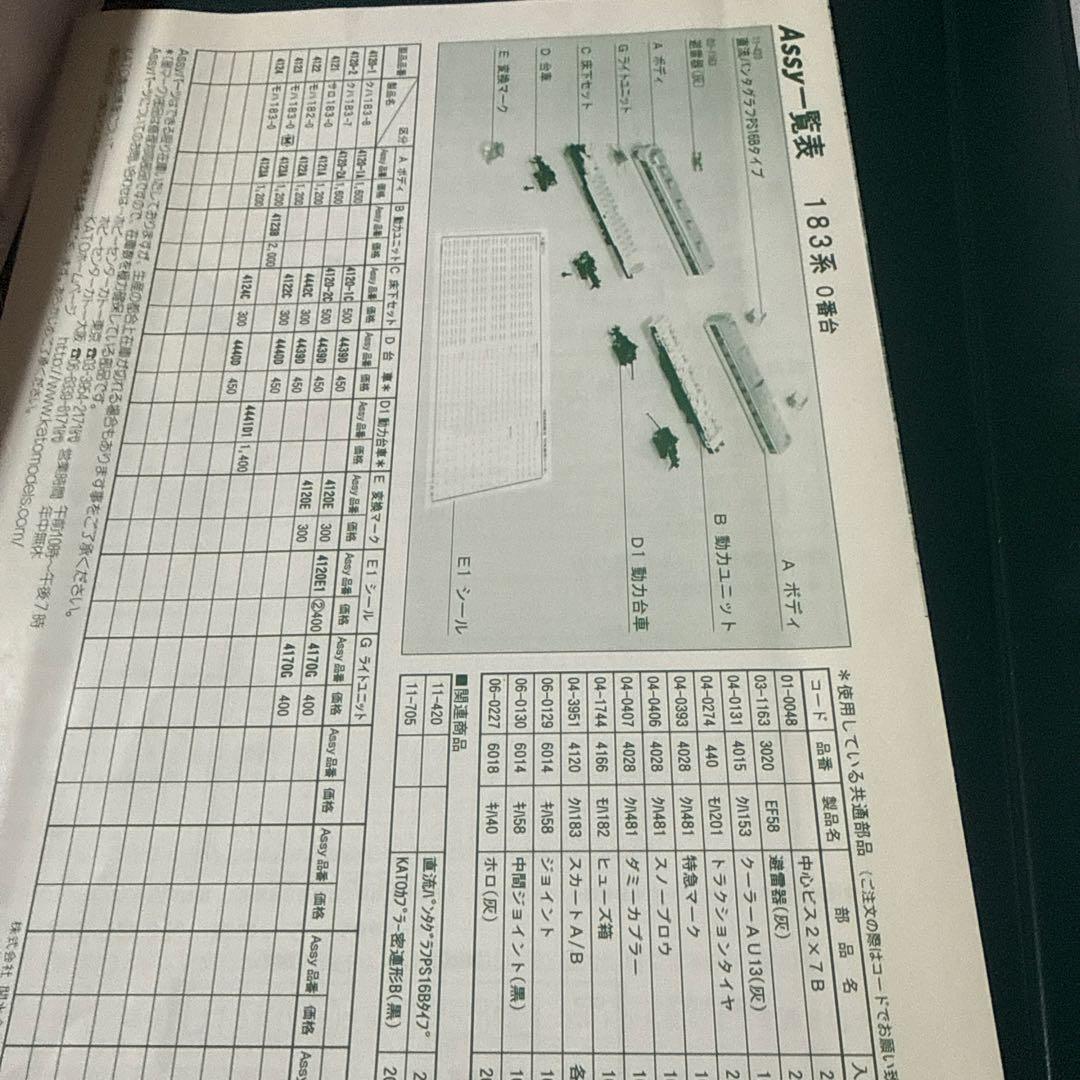 Assy一覧表 183系 0番台
11-420
直流パンタグラフPS16Bタイプ
03-1163
避雷器(灰)
A ボディ
G ライトユニット
C 床下セット
D 台車
E 変換マーク
A ボディ
B 動力ユニット
D1 動力台車
E1 シール
製品品番 製品名 区分 A ボディ B 動力ユニット C 床下セット D 台 車* D1 動力台車* E 変換マーク E1 シール G ライトユニット
Assy品番 価格 Assy品番 価格 Assy品番 価格 Assy品番 価格 Assy品番 価格 Assy品番 価格 Assy品番 価格 Assy品番 価格 Assy品番 価格 Assy品番 価格 Assy品番 価格 Assy
4120-1 クハ183-8 4120-1A 1,600 4120-1C 500 4439D 450 4120E 300 4120E1 ②400 4170G 400
4120-2 クハ183-7 4120-2A 1,600 4120-2C 500 4439D 450 4120E 300 4170G 400
4121 サロ183-0 4121A 1,200 4442C 300 4439D 450
4122 モハ182-0 4122A 1,200 4122C 300 4440D 450
4123 モハ183-0 Ⓜ 4123A 1,200 4123B 2,000 4441D1 1,400
4124 モハ183-0 4123A 1,200 4124C 300 4440D 450
Assyパーツはできる限り在庫いたしておりますが、生産の都合上在庫が切れる場合もあります事をご了承ください。
ホビーセンターカトー東京
ホビーセンターカトー大阪 営業時間 午前10時〜午後7時 年中無休
KATOホームページ http://www.katomodels.com/
*使用している共通部品 (ご注文の際はコードでお願い致
コード 品番 製品名 部 品 名 入
01-0048 中心ビス2×7B 2
03-1163 3020 EF58 避雷器(灰) 2
04-0131 4015 クハ153 クーラーAU13(灰) 1
04-0274 440 モハ201 トラクションタイヤ 2
04-0393 4028 クハ481 特急マーク 1
04-0406 4028 クハ481 スノープロウ 1
04-0407 4028 クハ481 ダミーカプラー 1
04-1744 4166 モハ182 ヒューズ箱 1
04-3951 4120 クハ183 スカートA/B 各
06-0129 6014 キハ58 ジョイント 1
06-0130 6014 キハ58 中間ジョイント(黒) 1
06-0227 6018 キハ40 ホロ(灰) 2
■関連商品
11-420 直流パンタグラフPS16Bタイプ 2
11-705 KATOカプラー密連形B(黒) 20
株式会社